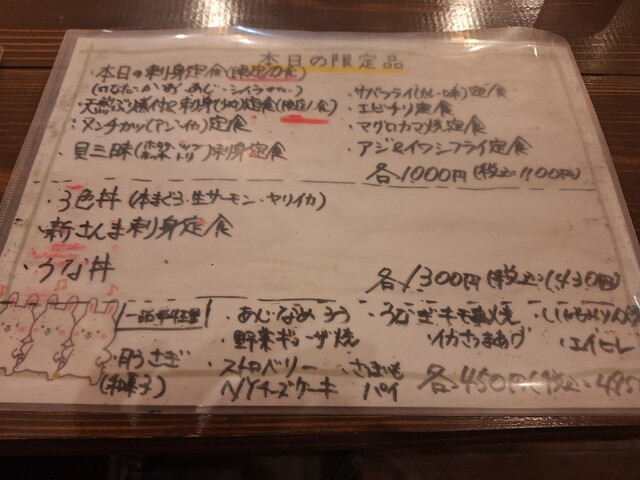 本日の限定品
・本日の刺身定食(限定 食)
・天然ぶり 刺身 定食(限定 食)
・メンチカツ(アン・イカ)定食
・貝三昧(ホタテ・ホッキ・ )刺身定食
・サバフライ(カレー味)定食
・エビチリ定食
・マグロカマ焼定食
・アジ&イワシフライ定食
各1000円(税込1100円)
・3色丼(本まぐろ・生サーモン・ヤリイカ)
・新さんま刺身定食
・うな丼
各1300円(税込1430円)
一品料理
・あじなめろう
・野菜ギョーザ焼
・うなぎキモ串焼
・イカさつまあげ
・エイヒレ
・月うさぎ
(和菓子)
・ストロベリー
NYチーズケーキ
・さつまいも
パイ
各450円(税込495